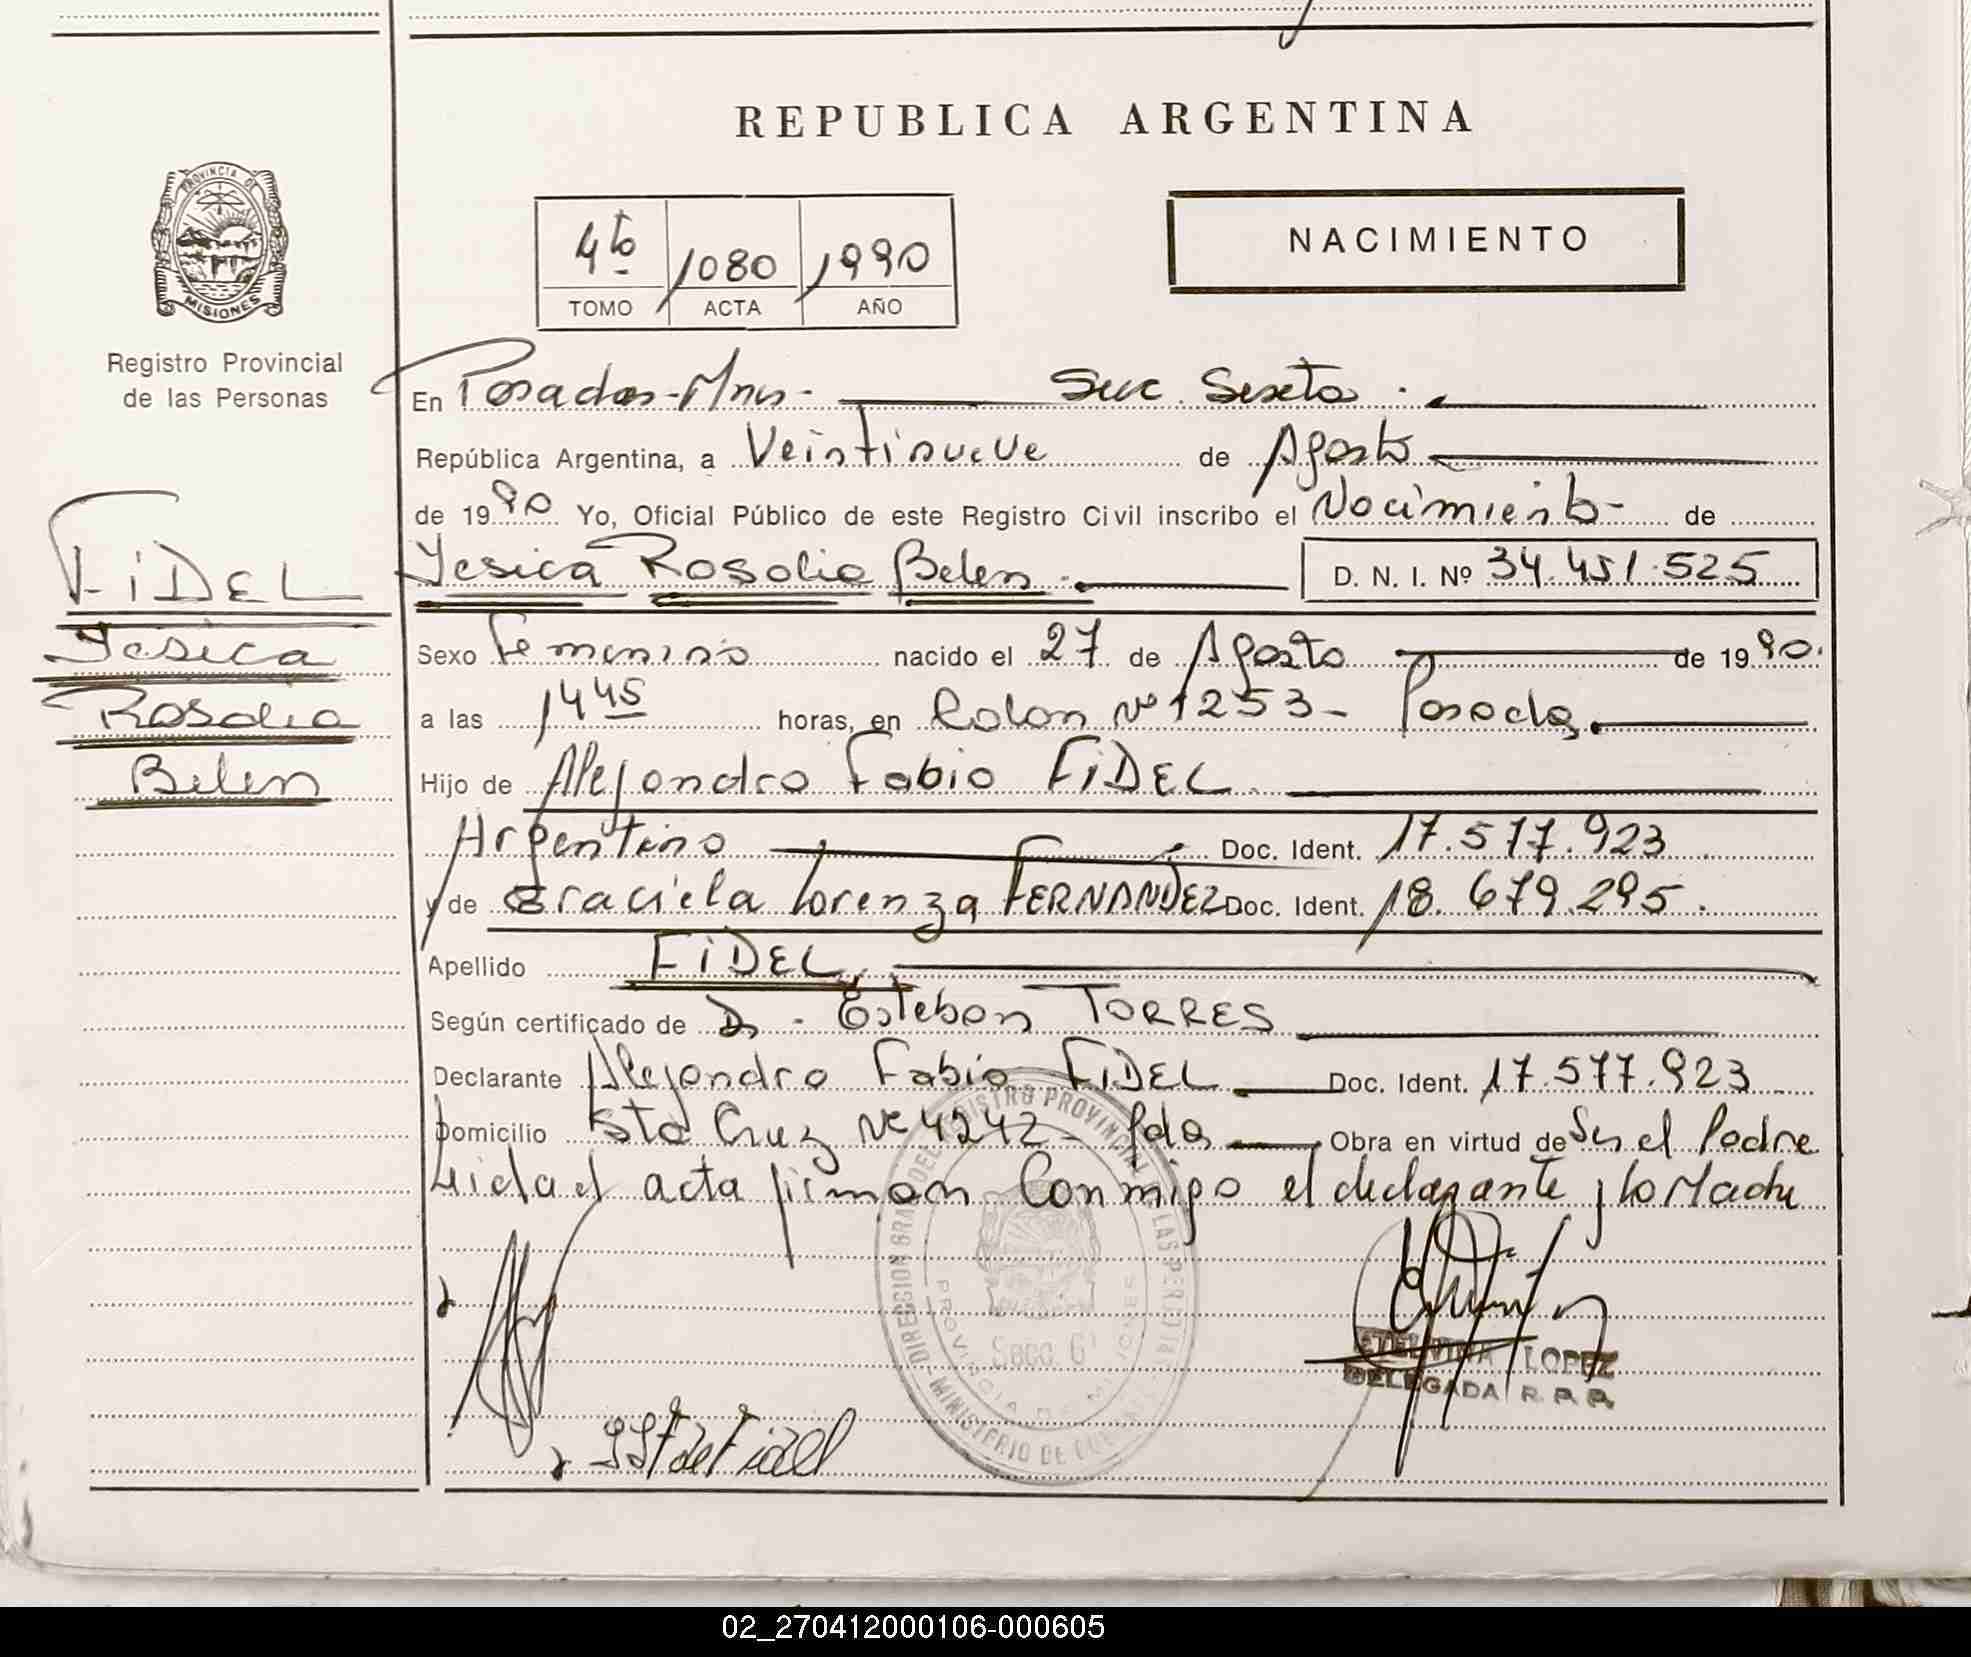 REPUBLICA ARGENTINA
PROVINCIA DE
MISIONES
Registro Provincial
de las Personas
4to 1080 1990
TOMO ACTA AÑO
NACIMIENTO
En Posadas-Mnes- Suc. Sexta.
República Argentina, a Veintinueve de Agosto
de 1990 Yo, Oficial Público de este Registro Civil inscribo el Nacimiento de
Yesica Rosalia Belen. D. N. I. Nº 34.451.525
FiDEL
Yesica
Rosalia
Belen
Sexo Femenino nacido el 27 de Agosto de 1990.
a las 1445 horas, en Colon Nº 1253- Posadas
Hijo de Alejandro Fabio FiDEL
Argentino Doc. Ident. 17.577.923
y de Graciela Lorenza FERNANDEZ Doc. Ident. 18.679.295.
Apellido FiDEL
Según certificado de Dr. Esteban TORRES
Declarante Alejandro Fabio FiDEL Doc. Ident. 17.577.923
Domicilio Sta Cruz Nº 4242- Pdas Obra en virtud de Ser el Padre
Leida el acta firman Conmigo el declarante y la Madre
DIRECCION GRAL DEL REGISTRO PROVINCIAL DE LAS PERSONAS
PROVINCIA DE MISIONES
Secc. 6ª
MINISTERIO DE
ETELVINA LOPEZ
DELEGADA R. P. P.
de Fidel
02_270412000106-000605